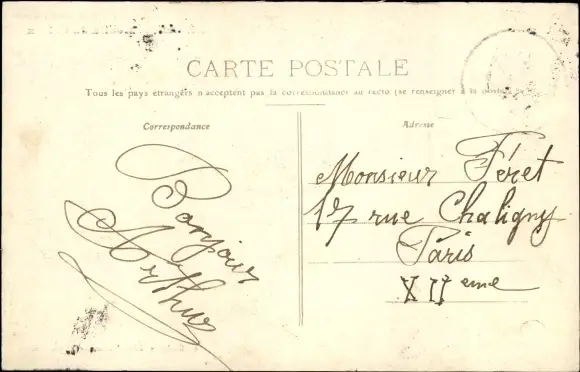 CARTE POSTALE
Tous les pays étrangers n'acceptent pas la correspondance au recto (se renseigner à la poste)
Correspondance
Bonjour
Arthur
Adresse
Monsieur Féret
17 rue Chaligny
Paris
XII eme